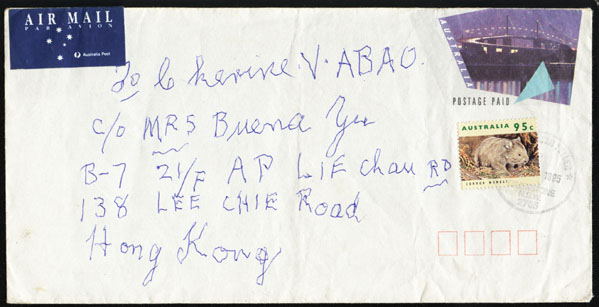 AIR MAIL
PAR AVION
Australia Post
AUSTRALIA
POSTAGE PAID
AUSTRALIA 95c
COMMON WOMBAT
To Cherine V. ABAO.
C/O MRS Buena Yu
B-7 21/F AP LIE Chau RD
138 LEE CHIE Road
Hong Kong